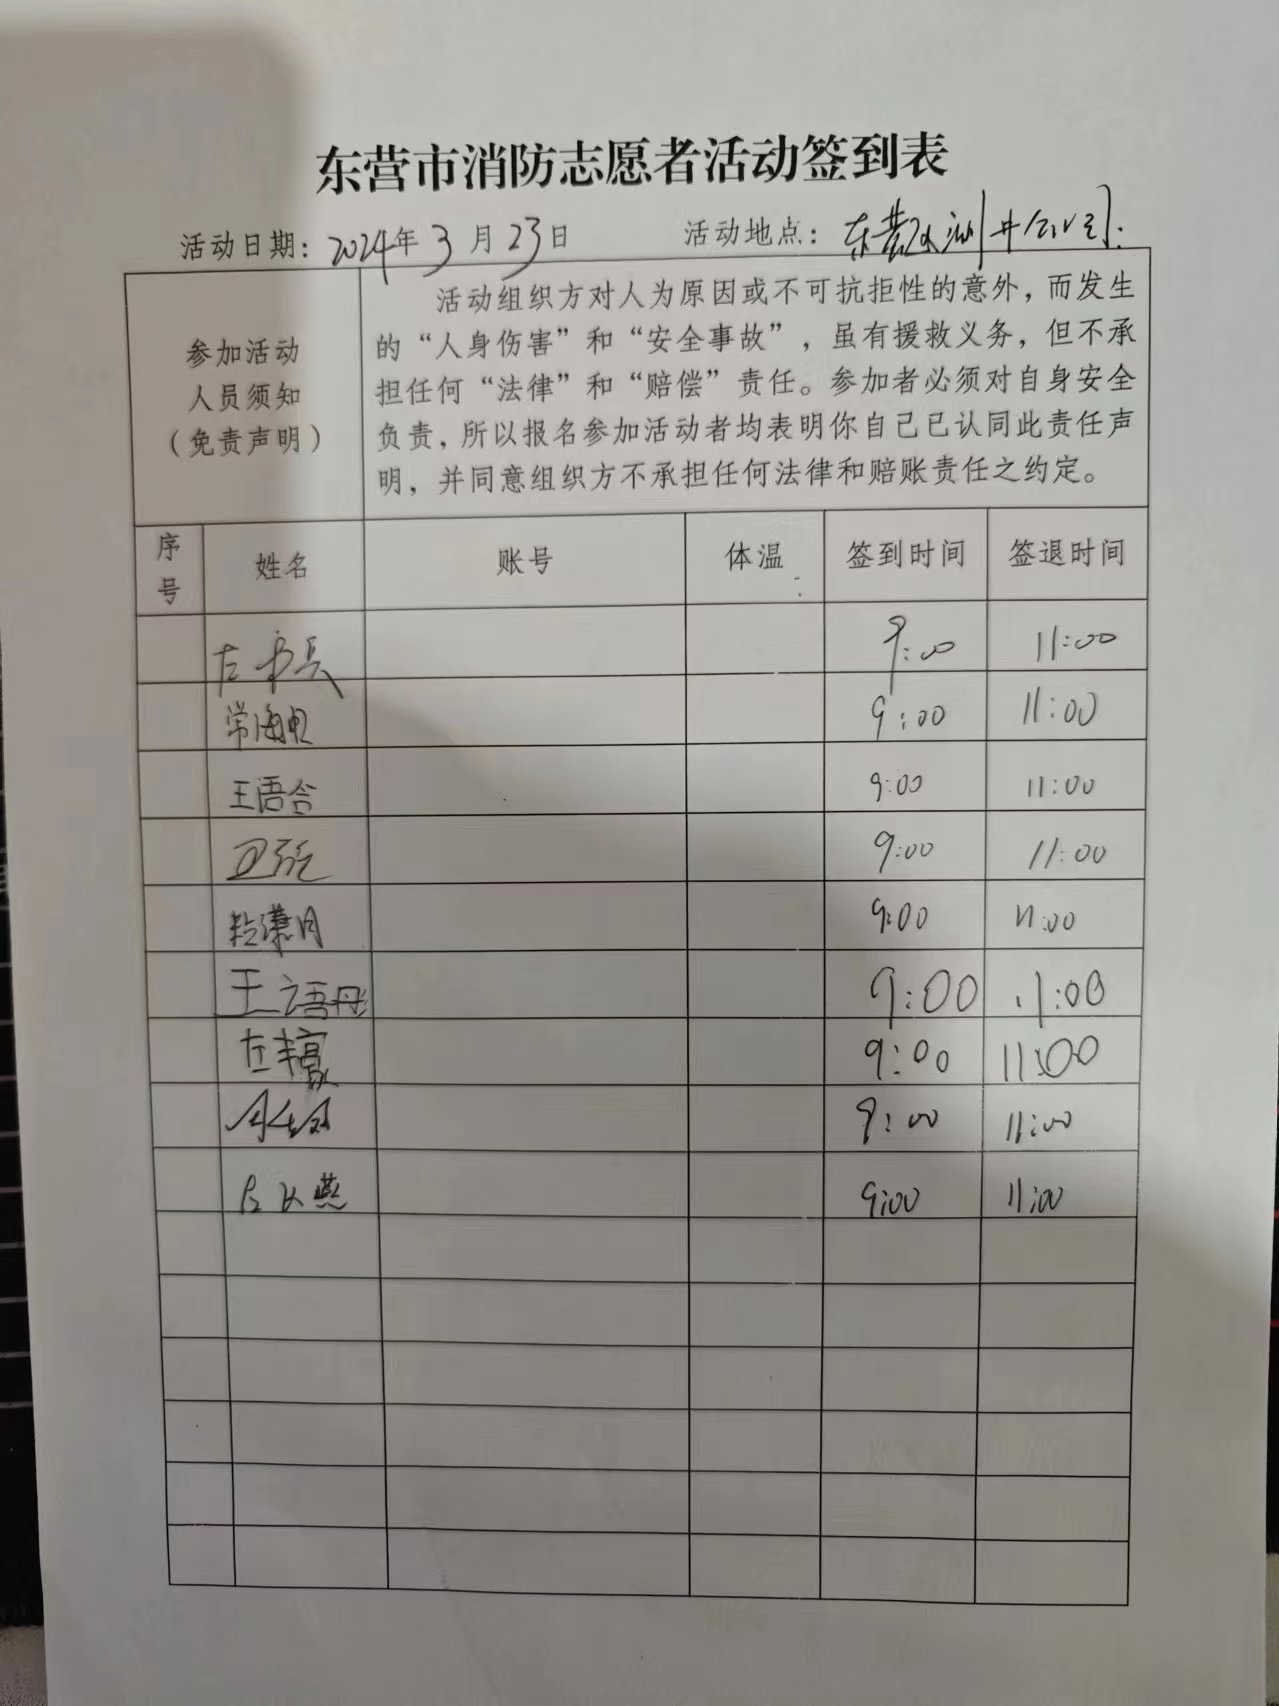 东营市消防志愿者活动签到表
活动日期：2024年3月23日 活动地点：东营
参加活动
人员须知
（免责声明）
活动组织方对人为原因或不可抗拒性的意外，而发生
的“人身伤害”和“安全事故”，虽有援救义务，但不承
担任何“法律”和“赔偿”责任。参加者必须对自身安全
负责，所以报名参加活动者均表明你自己已认同此责任声
明，并同意组织方不承担任何法律和赔账责任之约定。
序号 姓名 账号 体温 签到时间 签退时间
左 9:00 11:00
常海 9:00 11:00
王语合 9:00 11:00
9:00 11:00
月 9:00 11:00
王语彤 9:00 11:00
左 9:00 11:00
9:00 11:00
左 燕 9:00 11:00